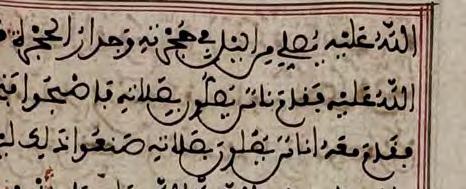 الله عليه يصلي من اليل في حجرته وجدار الحجرة
الله عليه فقام ناس يصلون بصلاته فاصبحوا
فقام معه اناس يصلون بصلاته صنعوا ذلك